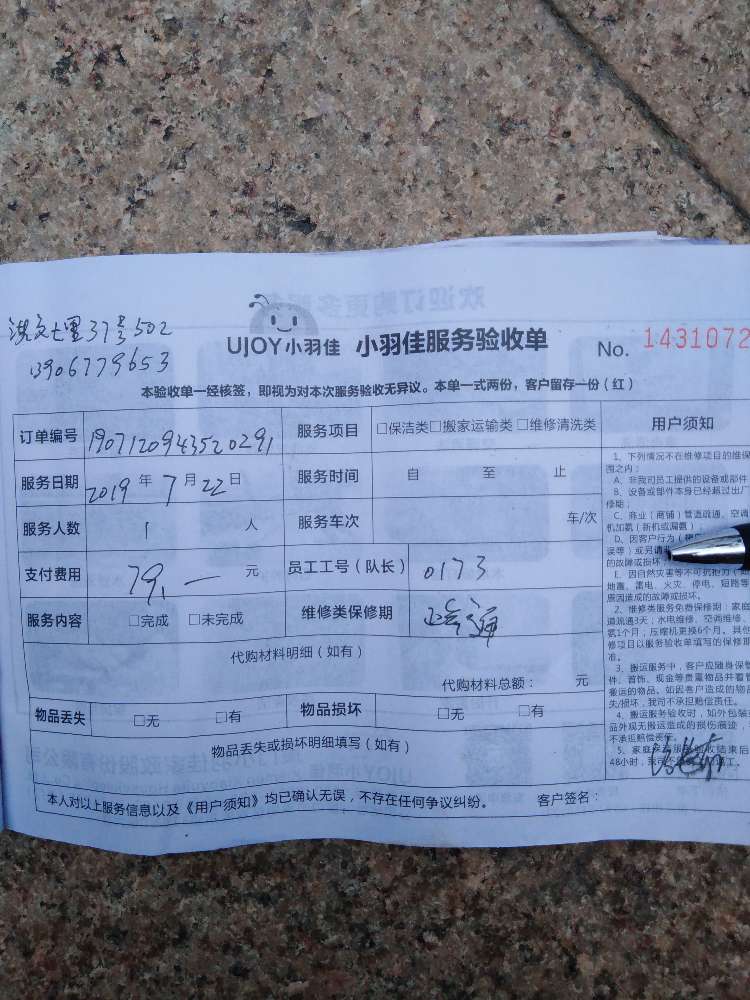 洪文七里37号502
13906779653
UJOY小羽佳 小羽佳服务验收单 No. 1431072
本验收单一经核签，即视为对本次服务验收无异议。本单一式两份，客户留存一份（红）
订单编号 190712094352029 服务项目 □保洁类□搬家运输类□维修清洗类 用户须知
服务日期 2019年7月22日 服务时间 自 至 止
服务人数 1 人 服务车次 车/次
支付费用 79.— 元 员工工号（队长） 0173
服务内容 □完成 □未完成 维修类保修期
代购材料明细（如有）
代购材料总额： 元
物品丢失 □无 □有 物品损坏 □无 □有
物品丢失或损坏明细填写（如有）
本人对以上服务信息以及《用户须知》均已确认无误，不存在任何争议纠纷。 客户签名：
1、下列情况不在维修项目的维保
围之内：
A、非我司员工提供的设备或部件
B、设备或部件本身已经超过出厂
修期；
C、商业（商铺）管道疏通、空调
机加氨（新机或漏氨）；
D、因客户行为
误等）或另请
的故障或损坏；
E、因自然灾害等不可抗拒力
地震、雷电、火灾、停电、短路等
原因造成的故障或损坏。
2、维修类服务免费保修期：家庭
道疏通3天；水电维修、空调维修、
氨1个月；压缩机更换6个月，其他
修项目以服务验收单填写的保修期
准。
3、搬运服务中，客户应随身保管
件、首饰、现金等贵重物品并看管
搬运的物品。如因客户造成的物品
失/损坏，我司不承担赔偿责任。
4、搬运服务验收时，如外包装
品外观无搬运造成的损伤痕迹，
不承担赔偿责任。
5、家庭 服务验收结束后
48小时，我司不